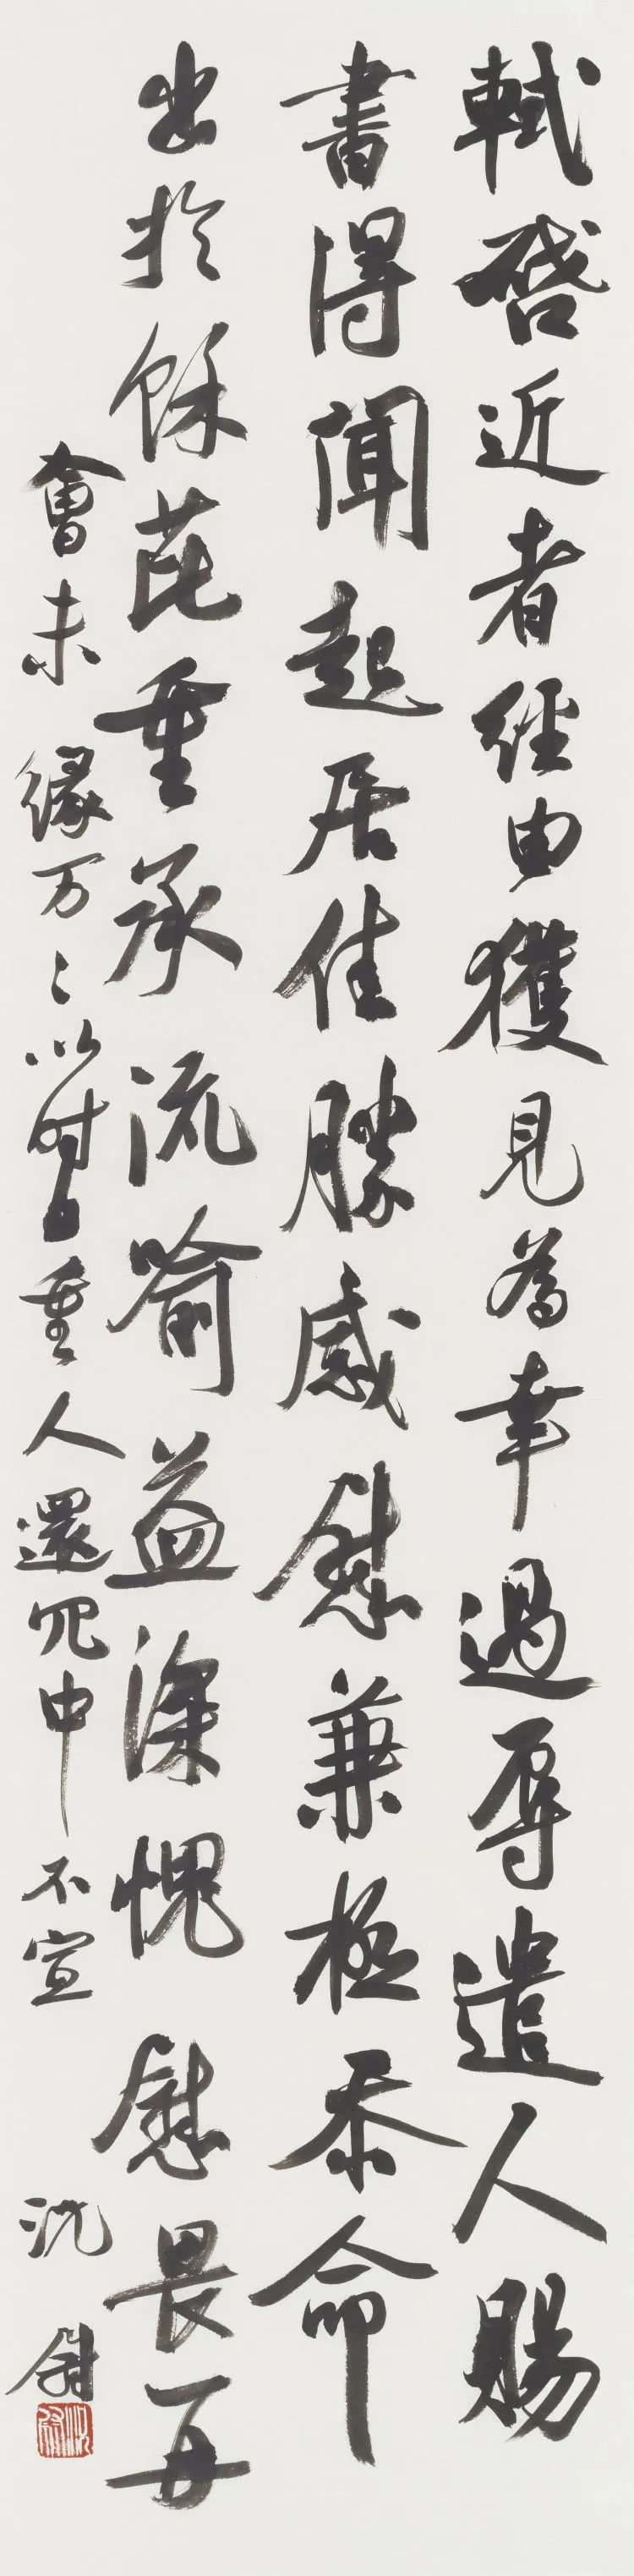 軾啓近者經由獲見為幸過辱遣人賜
書得聞起居佳勝感慰兼極忝命
出於餘芘重承流喻益深愧慰畏再
會未緣万〻以時自重人還冗中不宣
沈尉